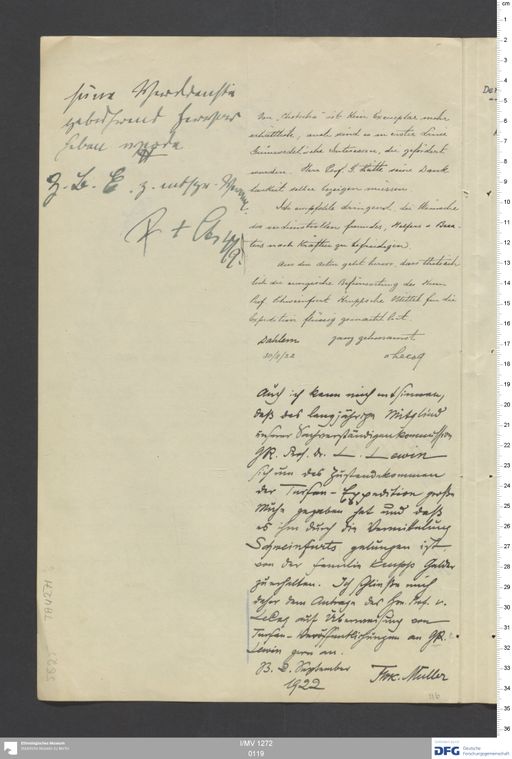 seine Verdienste
gebührend hervor
heben werde
z. B. E. z. entspr.
Von "Chotscho" ist kein Exemplar mehr
erhältlich, auch sind es in erster Linie
Grünwedel'sche Interessen, die gefördert
wurden. Herr Prof. G. hätte seine Dank
barkeit selber bezeigen müssen.
Ich empfehle dringend, die Wünsche
des verdienstvollen Freundes, Helfers u. Bera-
ters nach Kräften zu befriedigen.
Aus den Akten geht hervor, dass thatsäch
lich die energische Befürwortung des Herrn
Prof Schweinfurt Kruppsche Mittel für die
Expedition flüssig gemacht hat.
Dahlem ganz gehorsamst
30/8/22 v Lecoq
Auch ich kann mich entsinnen,
daß das langjährige Mitglied
unserer Sachverständigenkommission
GR. Prof. Dr. L. Lewin
sich um das Zustandekommen
der Turfan-Expedition große
Mühe gegeben hat und daß
es ihm durch die Vermittelung
Schweinfurts gelungen ist
von der Familie Krupp Gelder
zu erhalten. Ich schließe mich
daher dem Antrage des Hrn. Prof. v.
LeCoq auf Überweisung von
Turfan-Veröffentlichungen an GR.
Lewin gern an.
B. 2. September
1922 FWK. Müller
116
I/MV 1272
0119
Ethnologisches Museum
Staatliche Museen zu Berlin
DFG Deutsche
Forschungsgemeinschaft